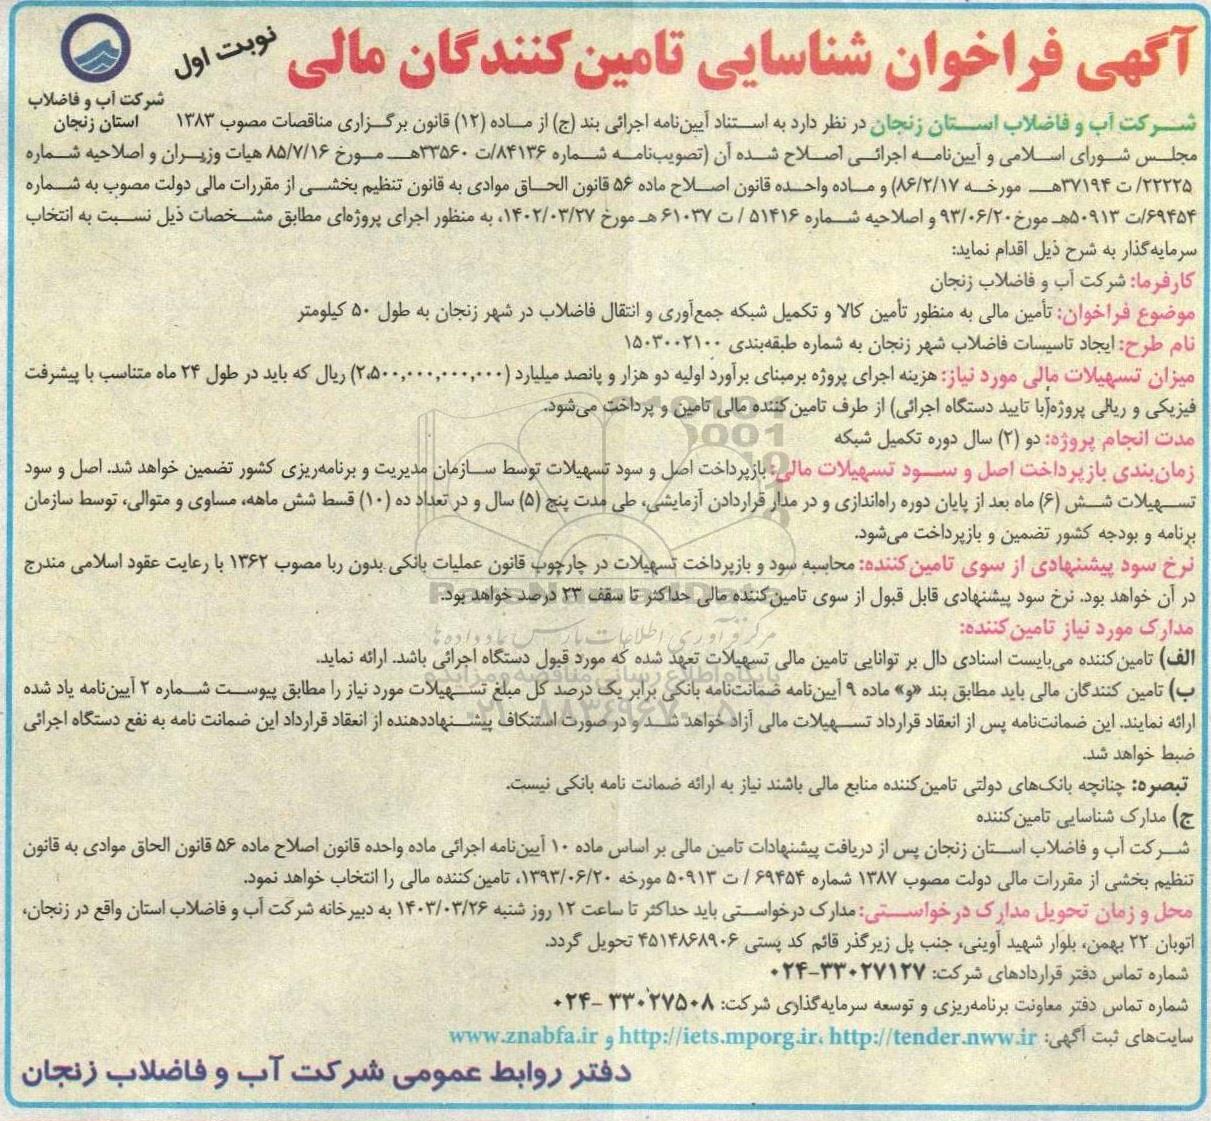 آگهی فراخوان شناسایی تامین‌کنندگان مالی
نوبت اول
شرکت آب و فاضلاب
استان زنجان
شرکت آب و فاضلاب استان زنجان در نظر دارد به استناد آیین‌نامه اجرائی بند (ج) از ماده (۱۲) قانون برگزاری مناقصات مصوب ۱۳۸۳
مجلس شورای اسلامی و آیین‌نامه اجرائی اصلاح شده آن (تصویب‌نامه شماره ۸۴۱۳۶/ت ۳۳۵۶۰هـ مورخ ۸۵/۷/۱۶ هیات وزیران و اصلاحیه شماره
۲۲۲۲۵/ ت ۳۷۱۹۴هـ مورخه ۸۶/۲/۱۷) و ماده واحده قانون اصلاح ماده ۵۶ قانون الحاق موادی به قانون تنظیم بخشی از مقررات مالی دولت مصوب به شماره
۶۹۴۵۴/ت ۵۰۹۱۳هـ مورخ ۹۳/۰۶/۲۰ و اصلاحیه شماره ۵۱۴۱۶ / ت ۶۱۰۳۷ هـ مورخ ۱۴۰۲/۰۳/۲۷، به منظور اجرای پروژه‌ای مطابق مشخصات ذیل نسبت به انتخاب
سرمایه‌گذار به شرح ذیل اقدام نماید:
کارفرما: شرکت آب و فاضلاب زنجان
موضوع فراخوان: تأمین مالی به منظور تأمین کالا و تکمیل شبکه جمع‌آوری و انتقال فاضلاب در شهر زنجان به طول ۵۰ کیلومتر
نام طرح: ایجاد تاسیسات فاضلاب شهر زنجان به شماره طبقه‌بندی ۱۵۰۳۰۰۲۱۰۰
میزان تسهیلات مالی مورد نیاز: هزینه اجرای پروژه برمبنای برآورد اولیه دو هزار و پانصد میلیارد (۲،۵۰۰،۰۰۰،۰۰۰،۰۰۰) ریال که باید در طول ۲۴ ماه متناسب با پیشرفت
فیزیکی و ریالی پروژه(با تایید دستگاه اجرائی) از طرف تامین‌کننده مالی تامین و پرداخت می‌شود.
مدت انجام پروژه: دو (۲) سال دوره تکمیل شبکه
زمان‌بندی بازپرداخت اصل و سود تسهیلات مالی: بازپرداخت اصل و سود تسهیلات توسط سازمان مدیریت و برنامه‌ریزی کشور تضمین خواهد شد. اصل و سود
تسهیلات شش (۶) ماه بعد از پایان دوره راه‌اندازی و در مدار قراردادن آزمایشی، طی مدت پنج (۵) سال و در تعداد ده (۱۰) قسط شش ماهه، مساوی و متوالی، توسط سازمان
برنامه و بودجه کشور تضمین و بازپرداخت می‌شود.
نرخ سود پیشنهادی از سوی تامین‌کننده: محاسبه سود و بازپرداخت تسهیلات در چارچوب قانون عملیات بانکی بدون ربا مصوب ۱۳۶۲ با رعایت عقود اسلامی مندرج
در آن خواهد بود. نرخ سود پیشنهادی قابل قبول از سوی تامین‌کننده مالی حداکثر تا سقف ۲۳ درصد خواهد بود.
مدارک مورد نیاز تامین‌کننده:
الف) تامین‌کننده می‌بایست اسنادی دال بر توانایی تامین مالی تسهیلات تعهد شده که مورد قبول دستگاه اجرائی باشد. ارائه نماید.
ب) تامین کنندگان مالی باید مطابق بند «و» ماده ۹ آیین‌نامه ضمانت‌نامه بانکی برابر یک درصد کل مبلغ تسهیلات مورد نیاز را مطابق پیوست شماره ۲ آیین‌نامه یاد شده
ارائه نمایند. این ضمانت‌نامه پس از انعقاد قرارداد تسهیلات مالی آزاد خواهد شد و در صورت استنکاف پیشنهاددهنده از انعقاد قرارداد این ضمانت نامه به نفع دستگاه اجرائی
ضبط خواهد شد.
تبصره: چنانچه بانک‌های دولتی تامین‌کننده منابع مالی باشند نیاز به ارائه ضمانت نامه بانکی نیست.
ج) مدارک شناسایی تامین‌کننده
شرکت آب و فاضلاب استان زنجان پس از دریافت پیشنهادات تامین مالی بر اساس ماده ۱۰ آیین‌نامه اجرائی ماده واحده قانون اصلاح ماده ۵۶ قانون الحاق موادی به قانون
تنظیم بخشی از مقررات مالی دولت مصوب ۱۳۸۷ شماره ۶۹۴۵۴ / ت ۵۰۹۱۳ مورخه ۱۳۹۳/۰۶/۲۰، تامین‌کننده مالی را انتخاب خواهد نمود.
محل و زمان تحویل مدارک درخواستی: مدارک درخواستی باید حداکثر تا ساعت ۱۲ روز شنبه ۱۴۰۳/۰۳/۲۶ به دبیرخانه شرکت آب و فاضلاب استان واقع در زنجان،
اتوبان ۲۲ بهمن، بلوار شهید آوینی، جنب پل زیرگذر قائم کد پستی ۴۵۱۴۸۶۸۹۰۶ تحویل گردد.
شماره تماس دفتر قراردادهای شرکت: ۳۳۰۲۷۱۲۷-۰۲۴
شماره تماس دفتر معاونت برنامه‌ریزی و توسعه سرمایه‌گذاری شرکت: ۳۳۰۲۷۵۰۸ -۰۲۴
سایت‌های ثبت آگهی: http://tender.nww.ir ،http://iets.mporg.ir و www.znabfa.ir
دفتر روابط عمومی شرکت آب و فاضلاب زنجان